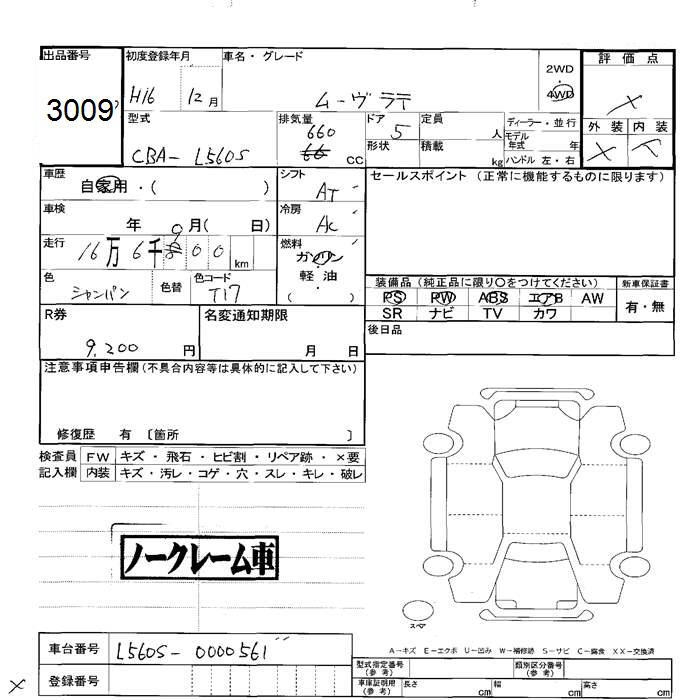 出品番号 初度登録年月 車名・グレード 評価点
3009 H16 12月 ムーヴラテ 2WD
4WD ×
型式 排気量 ドア 定員 ディーラー・並行 外装 内装
CBA- L560S 660 cc 5 人 モデル年式 年 ×
形状 積載 kg ハンドル 左・右
車歴 自家用・( ) シフト AT セールスポイント (正常に機能するものに限ります)
車検 年 月( 日) 冷房 AC
走行 16万6千 00km 燃料 ガソリン・軽油 ( )
色 シャンパン 色替 色コード T17
装備品 (純正品に限り○をつけてください) 新車保証書
PS PW ABS エアB AW 有・無
SR ナビ TV カワ
R券 9,200円 名変通知期限 月 日 後日品
注意事項申告欄 (不具合内容等は具体的に記入して下さい)
修復歴 有 〔箇所 〕
検査員 FW キズ・飛石・ヒビ割・リペア跡・×要
記入欄 内装 キズ・汚レ・コゲ・穴・スレ・キレ・破レ
ノークレーム車
スペア
A-キズ E-エクボ U-凹み W-補修跡 S-サビ C-腐食 XX-交換済
車台番号 L560S- 0000561
型式指定番号 (参考) 類別区分番号 (参考)
× 登録番号
車庫証明用 (参考) 長さ cm 幅 cm 高さ cm